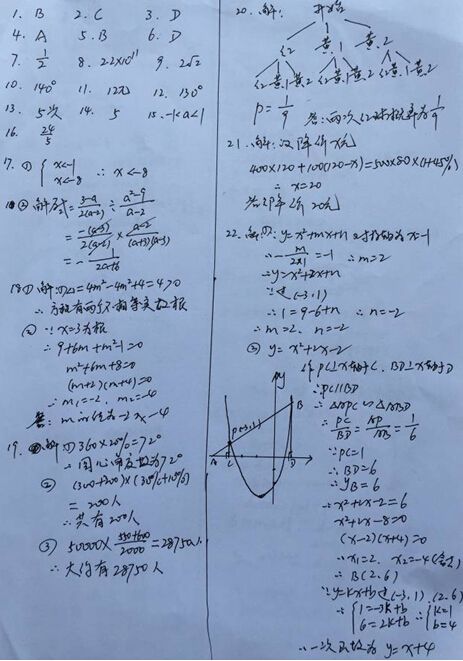 1. B 2. C 3. D
4. A 5. B 6. D
7. 1/2 8. 2.2×10¹¹ 9. 2√2
10. 140° 11. 12元 12. 130°
13. 5次 14. 5 15. -1<a<1
16. 24/5
17. ① { x<-1
x<-8 ∴ x<-8
② 解原式= (3-a)/(2(a-2)) ÷ (a²-9)/(a-2)
= -(a-3)/(2(a-2)) × (a-2)/((a+3)(a-3))
= - 1/(2a+6)
18① 解:①△=4m²-4m²+4=4>0
∴方程有两个不相等实数根
② ∵x=3为根
∴9+6m+m²-1=0
m²+6m+8=0
(m+2)(m+4)=0
∴m₁=-2, m₂=-4
答: m的值为-2或-4
19. 解:①360×20%=72°
∴圆心角度数为72°
② ×(30%+10%)
= 200人
∴共有200人
③ 50000× /2000 =28750人
∴大约有28750人
20. 解: 开始
红2 黄.1 黄.2
红2 黄.1 黄.2 红2 黄.1 黄.2 红2 黄.1 黄.2
P= 1/9 答:两次红球概率为1/9
21. 解:设降价x元
400×120+100(120-x)=500×80×(1+45%)
∴x=20
答:降价20元
22. 解①:y=x²+mx+n 对称轴为x=-1
∴ - m/(2×1) =-1 ∴m=2
∴y=x²+2x+n
∵过(-3,1)
∴1=9-6+n ∴n=-2
∴m=2, n=-2
② y=x²+2x-2
作PC⊥x轴于C, BD⊥x轴于D
∴PC∥BD
∴△APC∽△ABD
∴ PC/BD = AP/AB = 1/6
∵PC=1
∴BD=6
∴yB=6
∴x²+2x-2=6
x²+2x-8=0
(x-2)(x+4)=0
∴x₁=2, x₂=-4(舍去)
∴B(2,6)
∵y=kx+b过(-3,1),(2,6)
∴{ 1=-3k+b ∴{ k=1
6=2k+b b=4
∴一次函数为 y=x+4
y
B
P(-3,1)
A C D